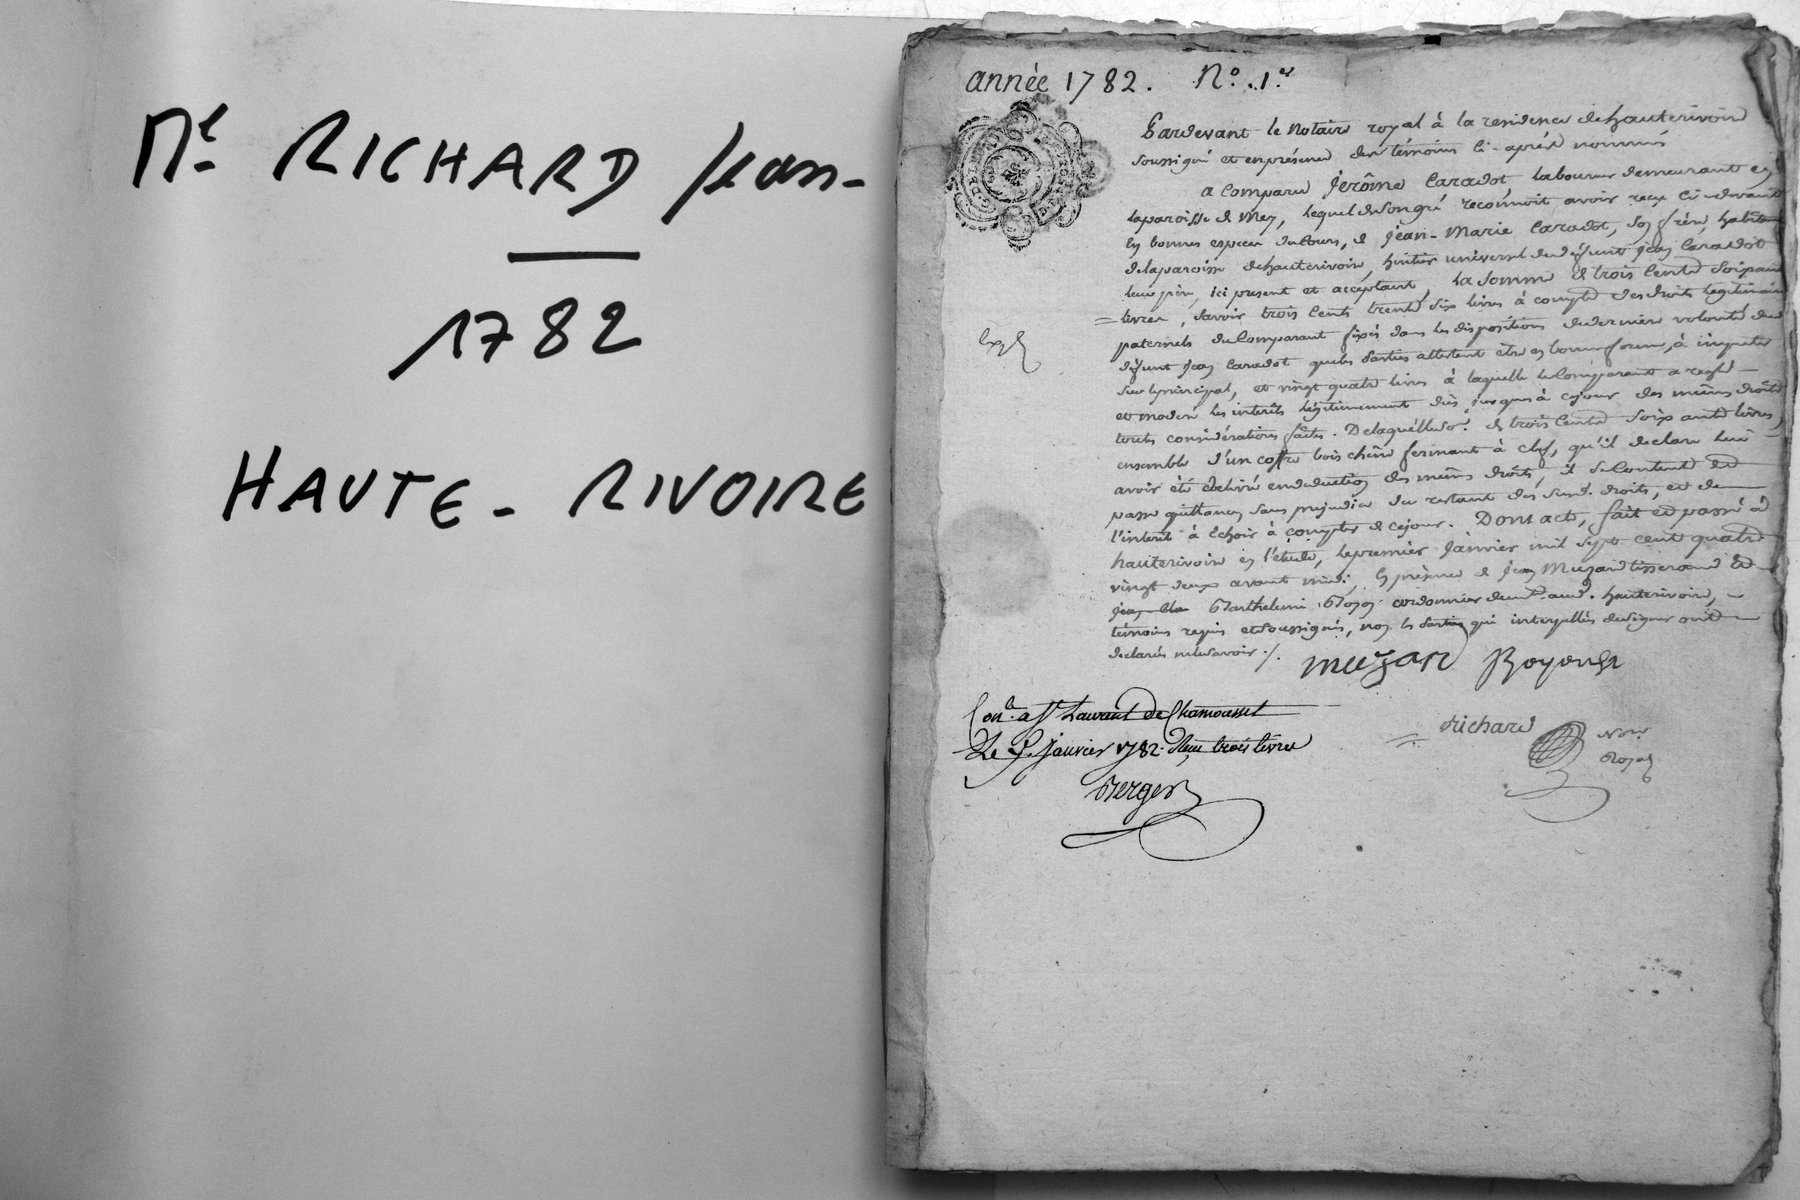 Me RICHARD Jean-
1782
HAUTE-RIVOIRE
année 1782. N.° 1.er
Pardevant le Notaire royal à la residence de hauterivoire
soussigné et en présence des témoins ci-après nommés
a Comparu Jerôme Caradot laboureur demeurant en
la paroisse de Mey, lequel de son gré reconnoit avoir reçu ci devant
en bonnes especes du Cours, de Jean-Marie Caradot, son frère, habitant
de la paroisse de hauterivoire, héritier universel de deffunt Jean Caradot
leur père, ici present et acceptant, la somme de trois Cents Soixante
livres, savoir trois Cents trente six livres à compte des droits legitimaires
paternels du Comparant fixés dans les dispositions de derniere volonté dud.
défunt Jean Caradot que les Parties attestent être en bonne forme, à imputer
sur le principal, et vingt quatre livres à laquelle le Comparant a reglé
et moderé les interêts légitimement dus jusques à ce jour des mêmes droits
toutes considérations faites. De laquelle so.e de trois Cents Soixante livres,
ensemble d'un coffre bois chêne fermant à clef, qu'il declare lui
avoir été delivré en deduction des mêmes droits, il se Contente et
passe quittance sans prejudice du restant des susd. droits, et de
l'interêt à echoir à compter de ce jour. Dont acte, fait et passé à
hauterivoire en l'étude, le premier Janvier mil sept cent quatre
vingt deux avant midi, en présence de Jean Muzard tisserand et
Barthelemi Boyon cordonnier dem.t aud. hauterivoire,
témoins requis et soussignés, non les Parties qui interpellées de signer ont
declarés ne le savoir ./.
Muzard Boyon
Con.lé a St Laurent de Chamousset
Le Janvier 1782. Reçu trois livres
Richard
Nore
Royal
Berger